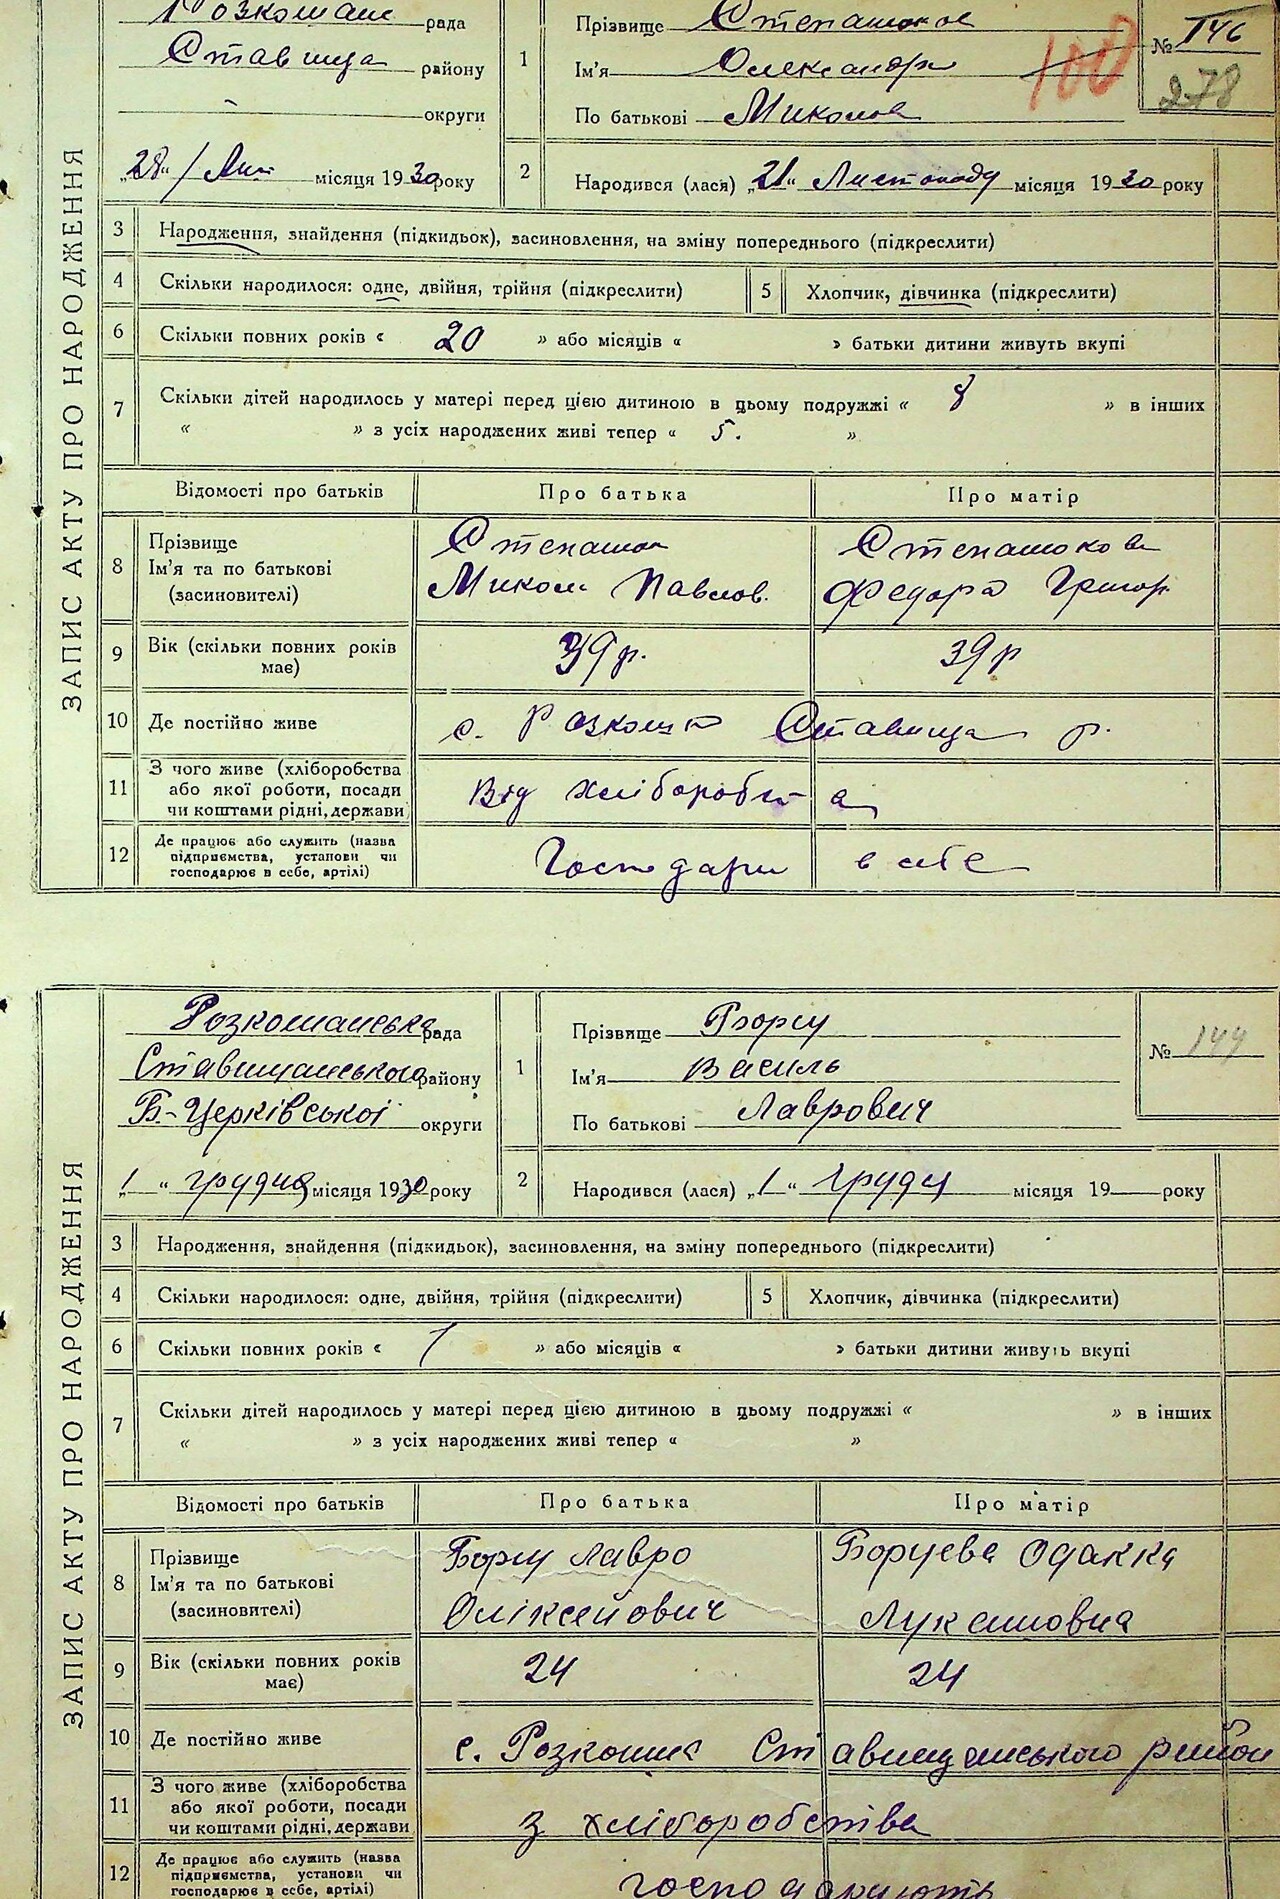 Розкошан рада
Ставища району
округи
„28“ / Лист місяця 1930 року
1
Прізвище
Ім'я Олександра
По батькові Миколов
№ 146
278
100
2
Народився (лася) „21“ Листопаду місяця 1930 року
ЗАПИС АКТУ ПРО НАРОДЖЕННЯ
3 Народження, знайдення (підкидьок), засиновлення, на зміну попереднього (підкреслити)
4 Скільки народилося: одне, двійня, трійня (підкреслити)
5 Хлопчик, дівчинка (підкреслити)
6 Скільки повних років « 20 » або місяців « » батьки дитини живуть вкупі
7 Скільки дітей народилось у матері перед цією дитиною в цьому подружжі « 8 » в інших
« » з усіх народжених живі тепер « 5. »
Відомості про батьків Про батька Про матір
8 Прізвище
Ім'я та по батькові
(засиновителі)
Степашок
Микола Павлов.
Степашокова
Федора Григор.
9 Вік (скільки повних років
має)
39 р. 39 р
10 Де постійно живе с. Розкошна Ставища р.
11 З чого живе (хліборобства
або якої роботи, посади
чи коштами рідні, держави
Від хліборобства
12 Де працює або служить (назва
підприємства, установи чи
господарює в себе, артілі)
Господари в себе
Розкошанська рада
Ставищанського району
Б-Церківської округи
„1“ грудня місяця 1930 року
1
Прізвище Борщ
Ім'я Василь
По батькові Лаврович
№ 147
2
Народився (лася) „1“ грудн місяця 19 року
ЗАПИС АКТУ ПРО НАРОДЖЕННЯ
3 Народження, знайдення (підкидьок), засиновлення, на зміну попереднього (підкреслити)
4 Скільки народилося: одне, двійня, трійня (підкреслити)
5 Хлопчик, дівчинка (підкреслити)
6 Скільки повних років « 1 » або місяців « » батьки дитини живуть вкупі
7 Скільки дітей народилось у матері перед цією дитиною в цьому подружжі « » в інших
« » з усіх народжених живі тепер « »
Відомості про батьків Про батька Про матір
8 Прізвище
Ім'я та по батькові
(засиновителі)
Борщ Лавро
Оліксейович
Борщева Одакка
Лукашовна
9 Вік (скільки повних років
має)
24 24
10 Де постійно живе с. Розкошна Ставищанського район
11 З чого живе (хліборобства
або якої роботи, посади
чи коштами рідні, держави
з хліборобства
12 Де працює або служить (назва
підприємства, установи чи
господарює в себе, артілі)
господарюють